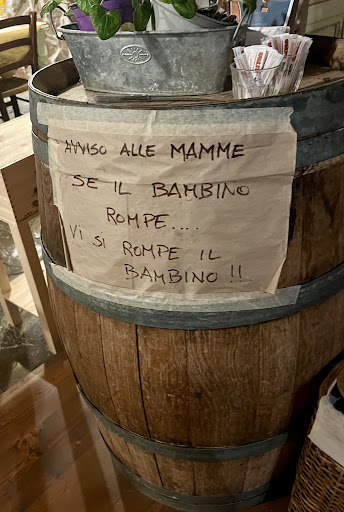 AVVISO ALLE MAMME
SE IL BAMBINO
ROMPE....
VI SI ROMPE IL
BAMBINO !!